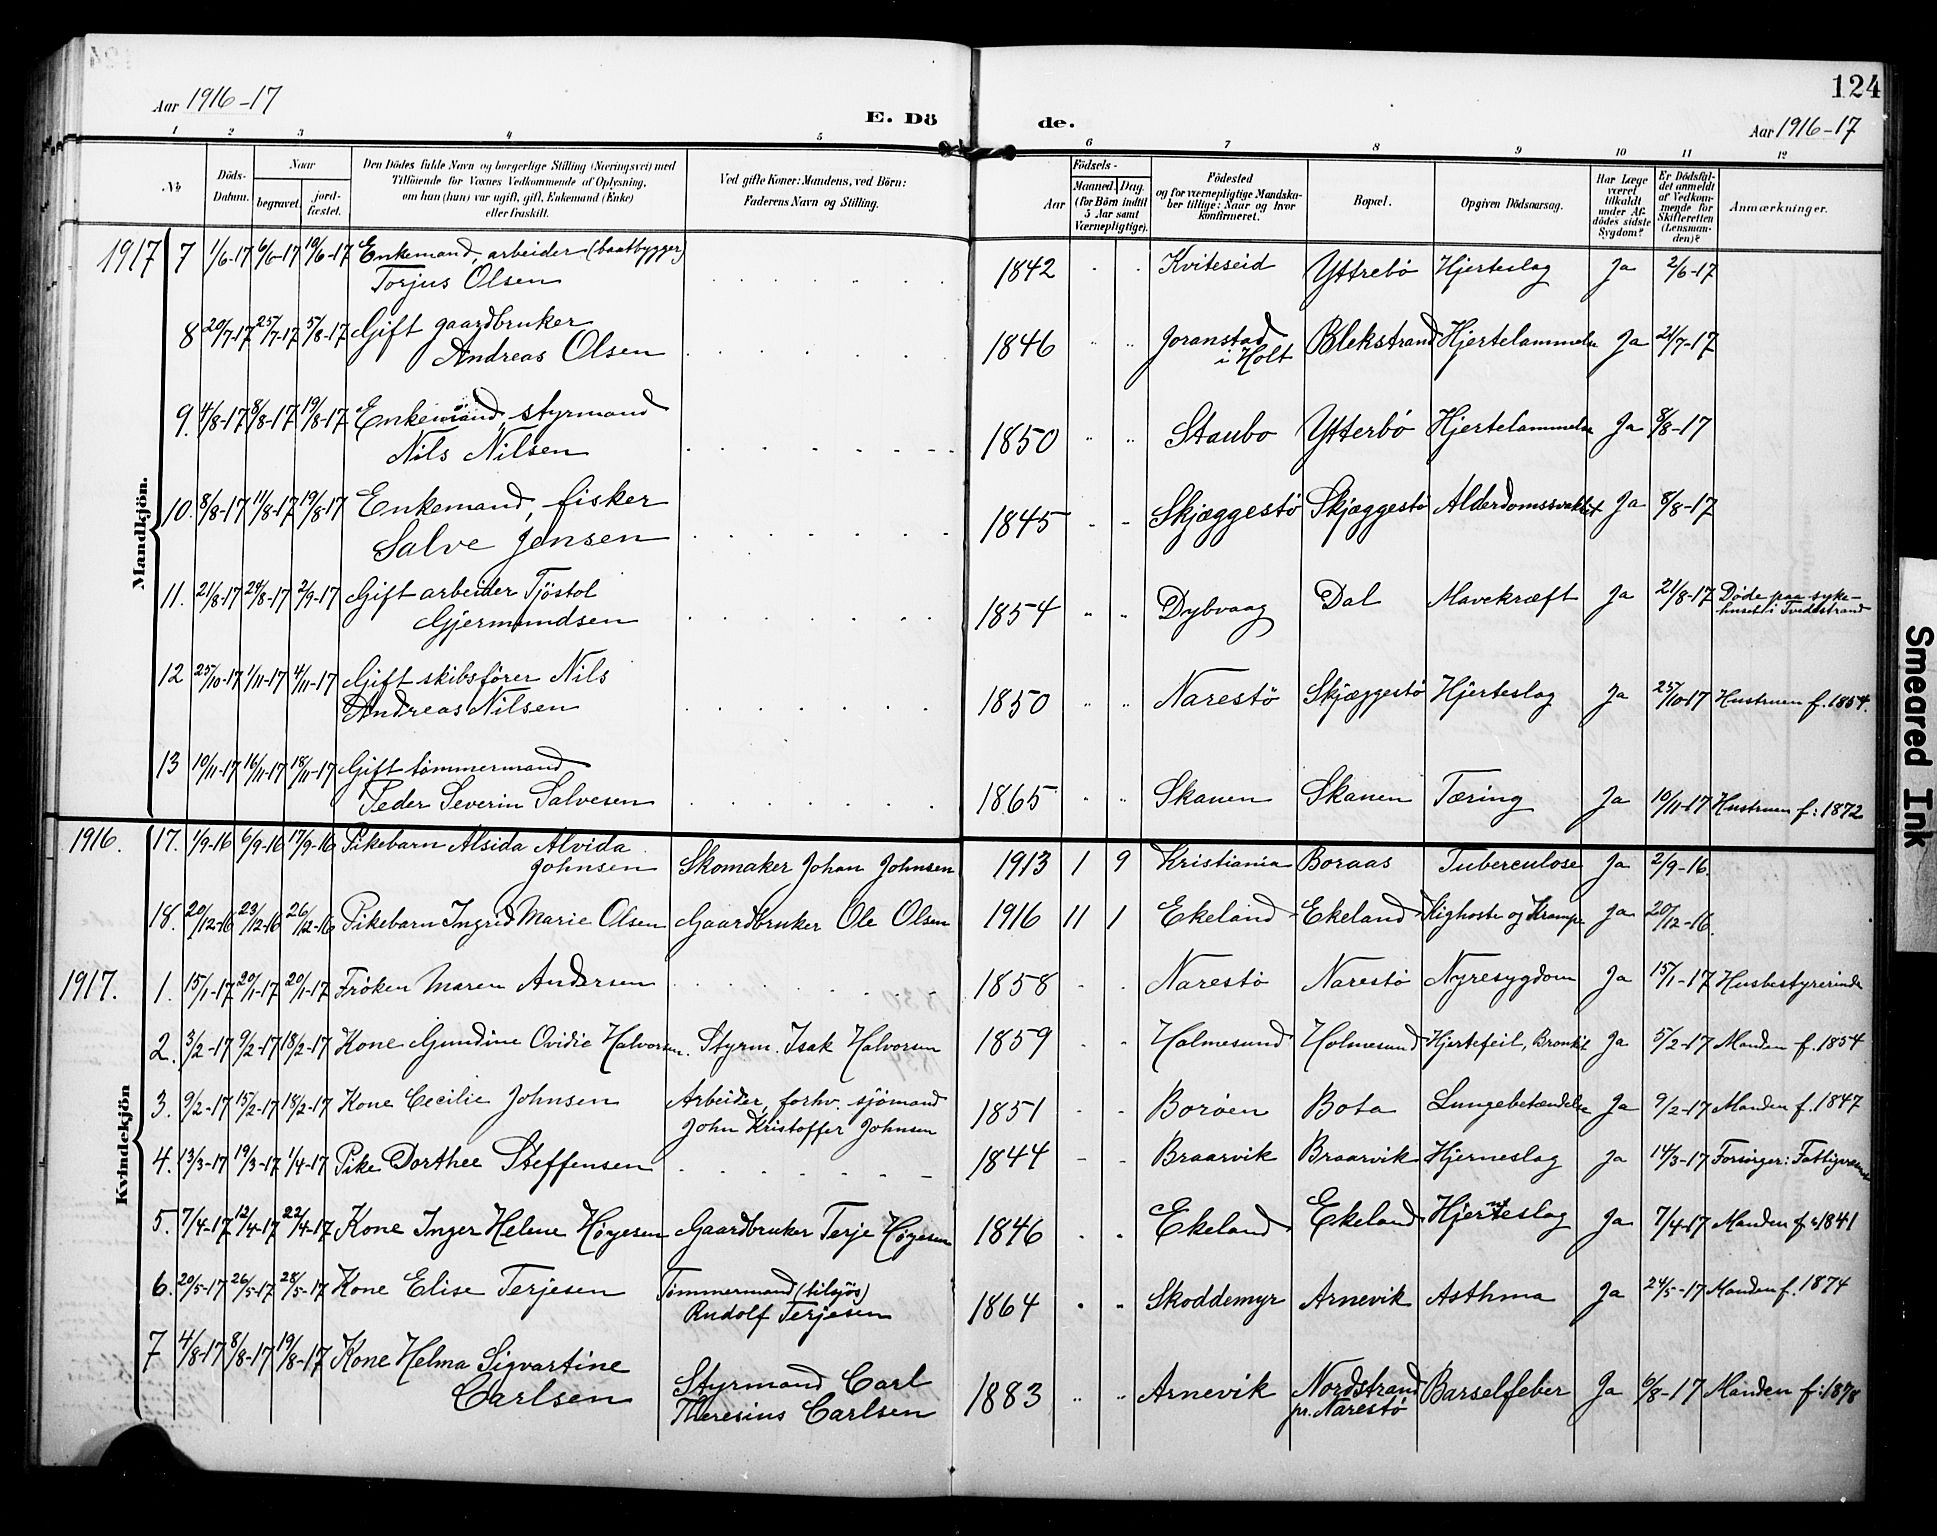 124
Aar 1916-17
E. Dö
de.
Aar 1916-17
1 2 3 4 5 6 7 8 9 10 11 12
№
Döds-
Datum.
Naar
begravet.
jord-
fæstet.
Den Dödes fulde Navn og borgerlige Stilling (Næringsvei) med
Tilföiende for Voxnes Vedkommende af Oplysning,
om han (hun) var ugift, gift, Enkemand (Enke)
eller fraskilt.
Ved gifte Koner: Mandens, ved Börn:
Faderens Navn og Stilling.
Födsels-
Aar
Maaned. Dag.
(for Börn indtil
5 Aar samt
Værnepligtige).
Födested
og for værnepligtige Mandska-
ber tillige: Naar og hvor
konfirmeret.
Bopæl.
Opgiven Dödsaarsag.
Har Læge
været
tilkaldt
under Af-
dödes sidste
Sygdom?
Er Dödsfal-
det anmeldt
af Vedkom-
mende for
Skifteretten
(Lensman-
den)?
Anmærkninger.
Mandkjön.
1917 7 1/6-17 6/6-17 10/6-17 Enkemand, arbeider (baatbygger)
Torjus Olsen 1842 Kviteseid Yttrebö Hjerteslag Ja 2/6-17
8 20/7-17 25/7-17 5/8-17 Gift gaardbruker
Andreas Olsen 1846 Joranstad
i Holt Blekstrand Hjertelammelse Ja 21/7-17
9. 4/8-17 8/8-17 19/8-17 Enkemand, styrmand
Nils Nilsen 1850 Staubo Ytterbö Hjertelammelse Ja 8/8-17
10. 8/8-17 11/8-17 19/8-17 Enkemand, fisker
Salve Jensen 1845 Skjæggestö Skjæggestö Alderdomssvakhet Ja 8/8-17
11. 21/8-17 24/8-17 2/9-17 Gift arbeider Tjöstol
Gjermundsen 1854 Dybvaag Dal Mavekræft Ja 21/8-17 Döde paa syke-
huset i Tvedestrand
12 25/10-17 1/11-17 4/11-17 Gift skibsfører Nils
Andreas Nilsen 1850 Narestö Skjæggestö Hjerteslag Ja 25/10-17 Hustruen f. 1854.
13 10/11-17 16/11-17 18/11-17 Gift tömmermand
Peder Severin Salvesen 1865 Skanen Skanen Tæring Ja 10/11-17 Hustruen f: 1872
Kvindekjön
1916. 17. 1/9-16 6/9-16 17/9-16 Pikebarn Alsida Alvida
Johnsen Skomaker Johan Johnsen 1913 1 9 Kristiania Boraas Tuberculose Ja 2/9-16.
18. 20/12-16 23/12-16 26/12-16 Pikebarn Ingrid Marie Olsen Gaardbruker Ole Olsen 1916 11 1 Ekeland Ekeland Kighoste og Krampe Ja 20/12-16.
1917. 1. 15/1-17 20/1-17 20/1-17 Fröken Maren Andersen 1858 Narestö Narestö Nyresygdom Ja 15/1-17 Husbestyrerinde
2. 3/2-17 9/2-17 18/2-17 Kone Gundine Ovidie Halvorsen. Styrm. Isak Halvorsen 1859 Holmesund Holmesund Hjertefeil, Bronkit Ja 5/2-17 Manden f. 1854
3. 9/2-17 15/2-17 18/2-17 Kone Cecilie Johnsen Arbeider, forhv. sjömand
John Kristoffer Johnsen 1851 Boröen Bota Lungebetændelse Ja 9/2-17 Manden f. 1847
4. 13/3-17 19/3-17 1/4-17 Pike Dorthee Steffensen 1844 Braarvik Braarvik Hjerneslag Ja 14/3-17 Forsörger: Fattigvæsenet
5. 7/4-17 12/4-17 22/4-17 Kone Inger Helene Högesen Gaardbruker Terje Högesen 1846 Ekeland Ekeland Hjerteslag Ja 7/4-17 Manden f: 1841
6. 20/5-17 26/5-17 28/5-17 Kone Elise Terjesen Tömmermand (tilsjös)
Rudolf Terjesen 1864 Skoddemyr Arnevik Asthma Ja 24/5-17 Manden f. 1874
7 4/8-17 8/8-17 19/8-17 Kone Helma Sigvartine
Carlsen Styrmand Carl
Theresius Carlsen 1883 Arnevik Nordstrand
pr. Narestö Barselfeber Ja 6/8-17 Manden f: 1878
Smeared Ink